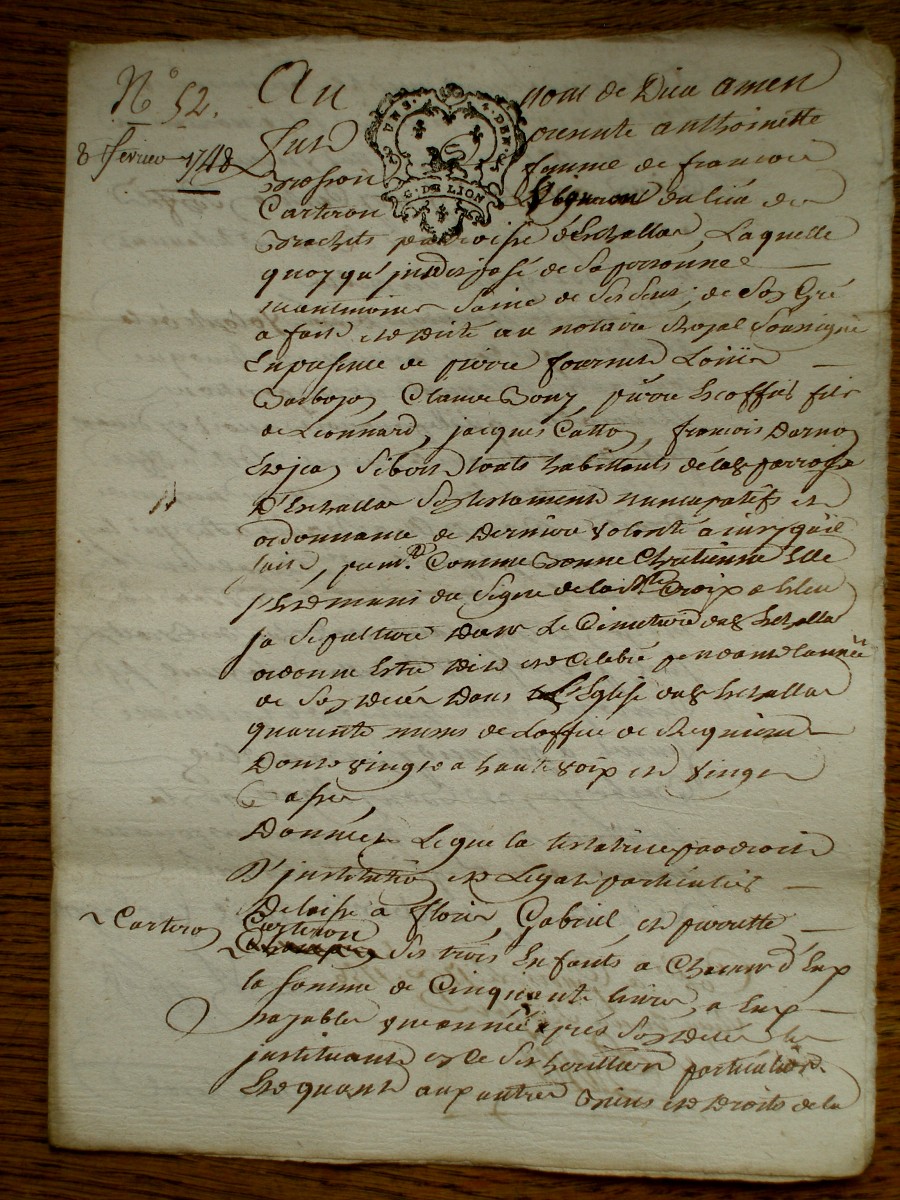 N° 52. Au nom de Dieu amen
8 fevrier 1748 Fut presente anthoinette
UNS. 4. DEN.
G. DE LION
femme de francois
Carteron du lieu de
parroisse d'Echallas, Laquelle
quoy qu'indisposé de sa personne
neantmoins saine de ses sens; de son Gré
a fait et dicté au notaire Royal Soussigné
En presence de pierre fournet Loüis
Claude Bony pierre Escoffié fils
de Leonnard, jacques Catto, francois Darno
Et jean Sibois touts habittants de lad parroisse
D'Echallas son testament nuncupatif et
ordonnance de Derniere volonté ainsy quil
suit, prem.t Comme Bonne Chretienne Elle
s'est muni du Signe de la s.te Croix a Eleu
sa Sepulture dans Le Cimetiere dud Echallas
ordonne Estre Dite et Celebré pendant l'année
de son Decés Dans L'Eglise dud Echallas
quarente messes de l'office de Requiem
Dont vingt a haute voix et vingt
a basse,
Donne et Legue la testatrice par droit
D'institution et Legat particulier
Delaisse a Gabriel et pierrette
Carteron Carteron
Ses trois Enfants a Chacun d'Eux
la somme de Cinquante livres, a Eux
payable une année apres son Decés les
instituant et De ses heritiers particuliers
Et quant aux autres biens et Droits de la